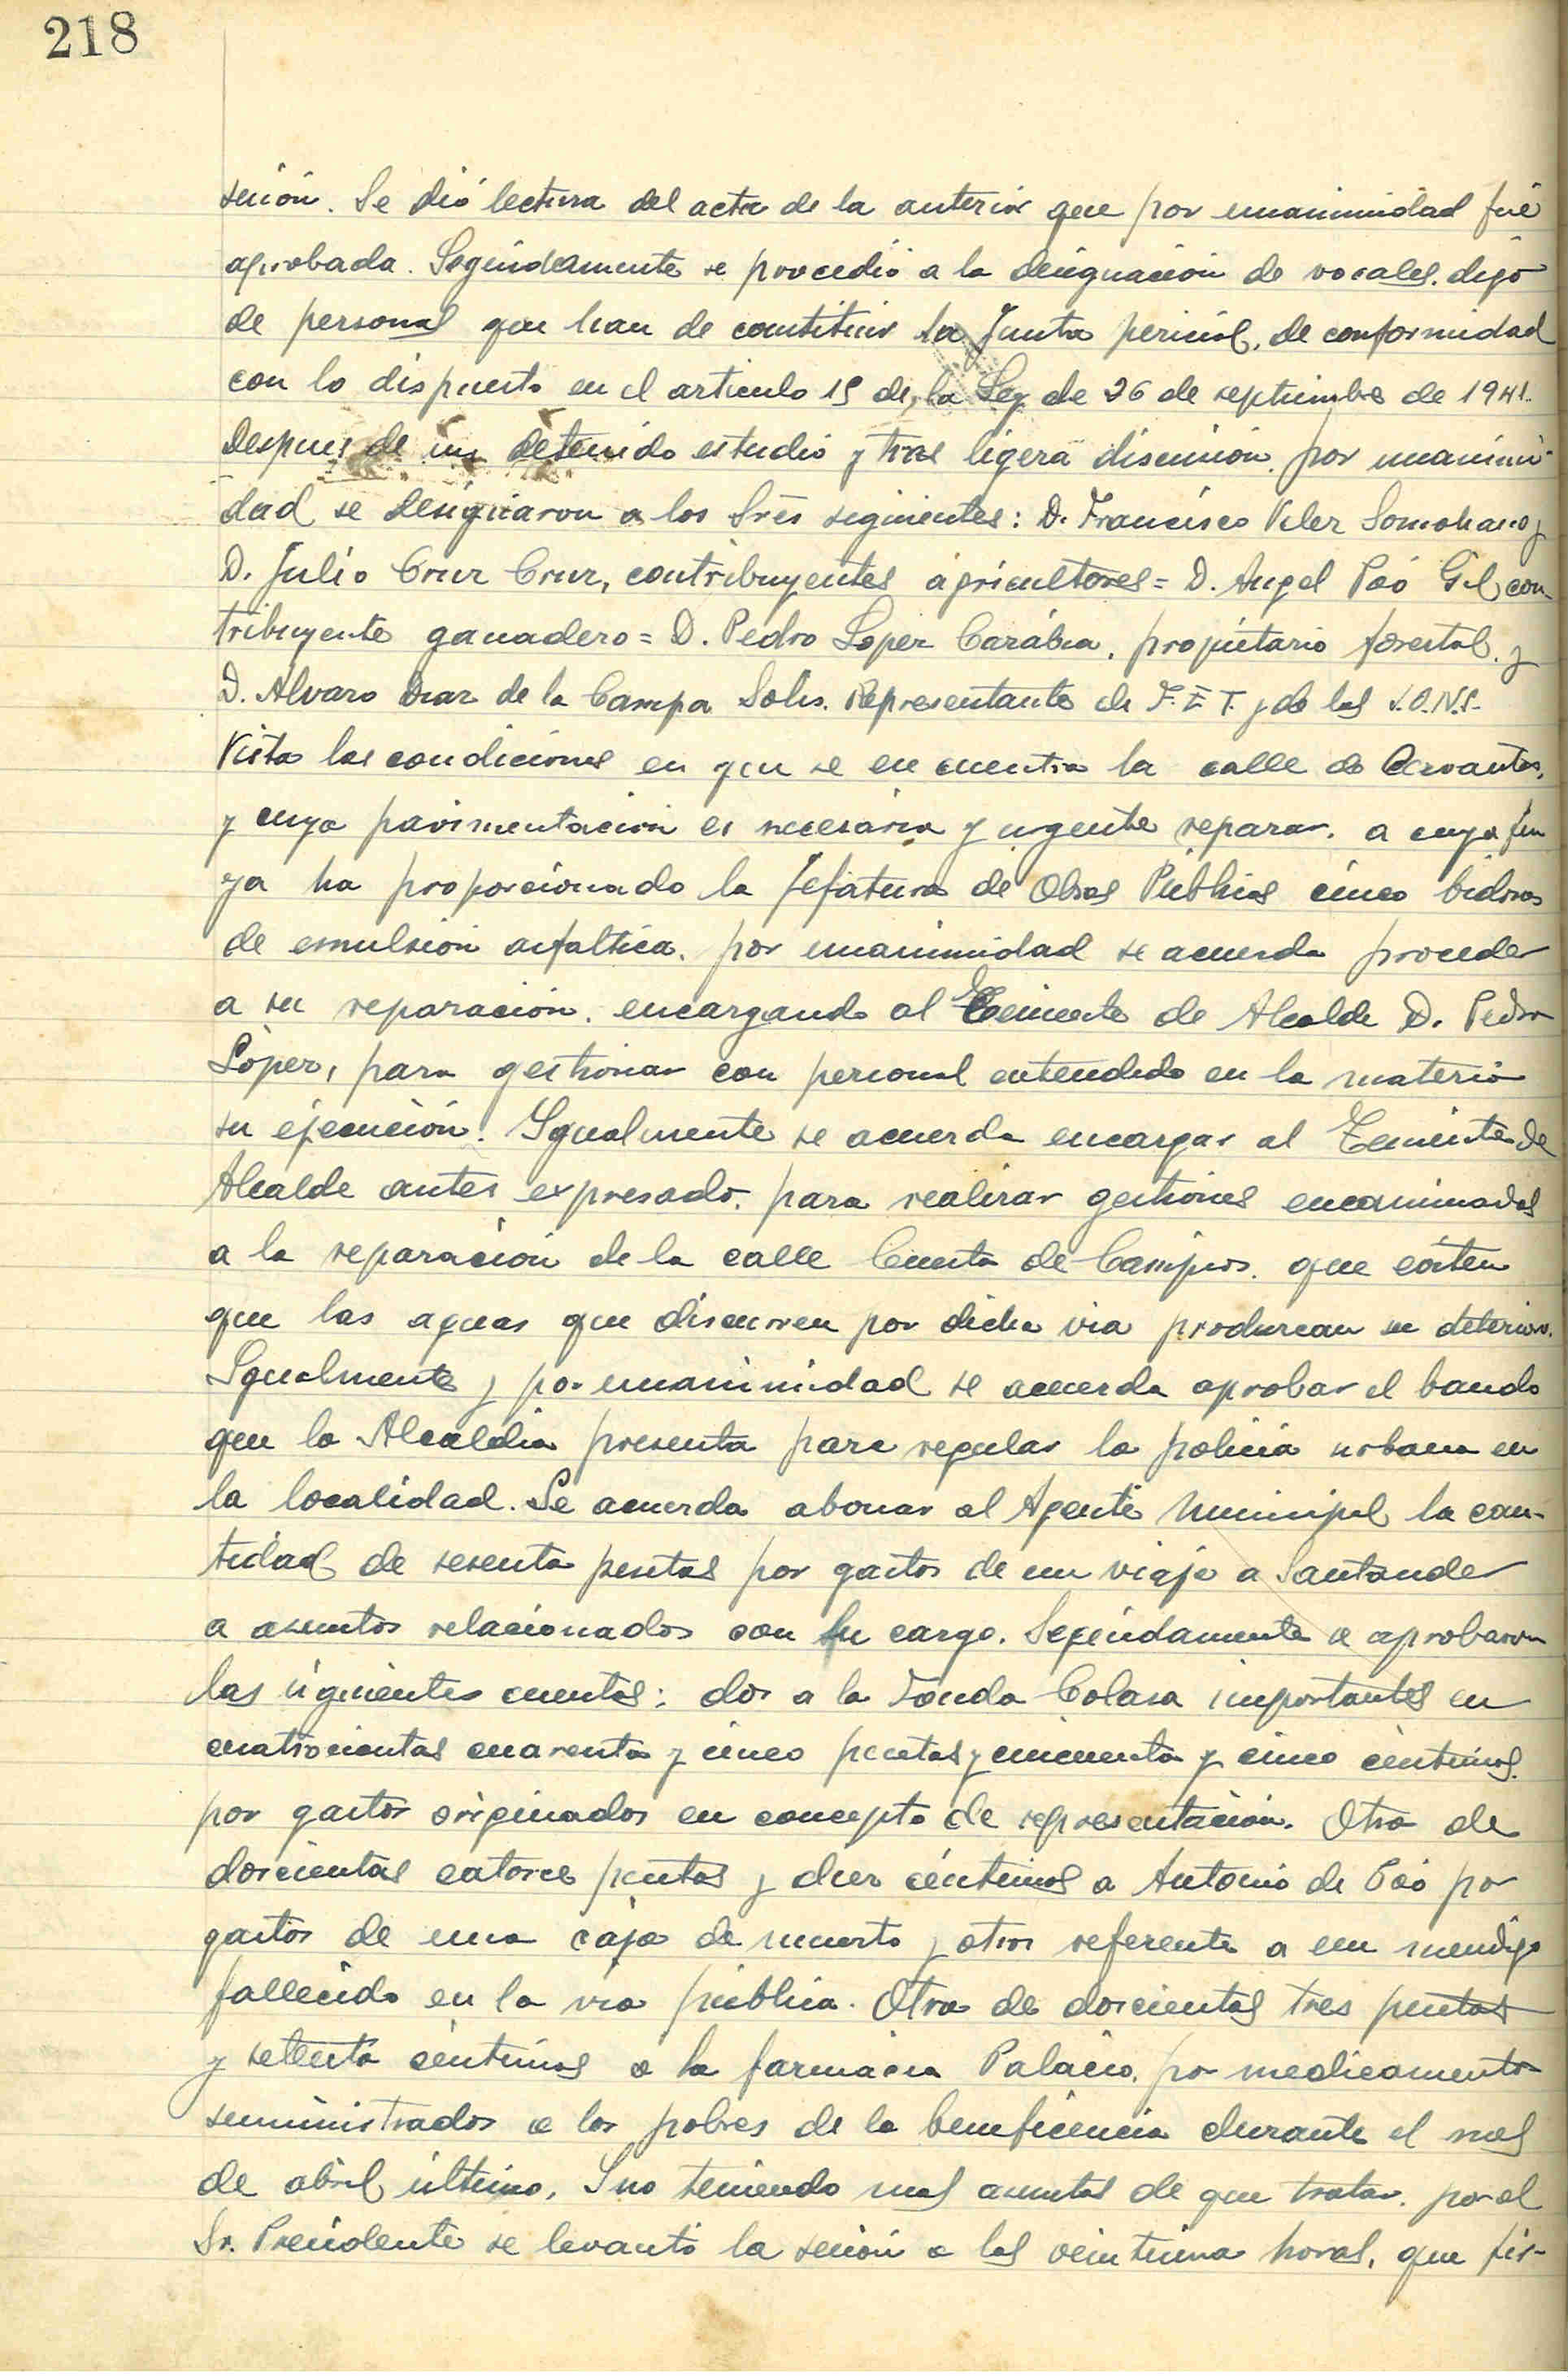 218
sesión. Se dió lectura del acta de la anterior que por unanimidad fué
aprobada. Seguidamente se procedió a la designación de vocales. digo
de personas que han de constituir la Junta pericial, de conformidad
con lo dispuesto en el articulo 15 de la Ley de 26 de septiembre de 1941.
Despues de un detenido estudio y tras ligera discusion, por unanimi-
dad se designaron a los Sres siguientes: D. Francisco Velez Somohano y
D. Julio Cruz Cruz, contribuyentes agricultores = D. Angel Poó Gil con-
tribuyente ganadero = D. Pedro Lopez Carabia, propietario forestal, y
D. Alvaro Diaz de la Campa Solis. Representante de F.E.T. y de las J.O.N.S.
Vista las condiciones en que se encuentra la calle de Cervantes,
y cuya pavimentacion es necesaria y urgente reparar, a cuyo fin
ya ha proporcionado la Jefatura de Obras Públicas cinco bidones
de emulsion asfaltica, por unanimidad se acuerda proceder
a su reparacion, encargando al Teniente de Alcalde D. Pedro
López, para gestionar con personal entendido en la materia
su ejecución. Igualmente se acuerda encargar al Teniente de
Alcalde antes expresado, para realizar gestiones encaminadas
a la reparación de la calle Cuesta de Campios, que eviten
que las aguas que discurren por dicha via produzcan su deterioro.
Igualmente y por unanimidad se acuerda aprobar el bando
que la Alcaldia presenta para regular la policia urbana en
la localidad. Se acuerda abonar al Agente Municipal la can-
tidad de sesenta pesetas por gastos de un viaje a Santander
a asuntos relacionados con su cargo. Seguidamente se aprobaron
las siguientes cuentas: dos a la Fonda Colasa importantes en
cuatrocientas cuarenta y cinco pesetas y cincuenta y cinco centimos,
por gastos originados en concepto de representación. Otra de
doscientas catorce pesetas y diez céntimos a Antonio de Poó por
gastos de una caja de muerto y otros referente a un mendigo
fallecido en la via pública. Otra de doscientas tres pesetas
y setenta céntimos a la farmacia Palacio, por medicamentos
suministrados a los pobres de la beneficencia durante el mes
de abril último. Y no teniendo mas asuntos de que tratar, por el
Sr. Presidente se levantó la sesión a las veintiuna horas, que fir-